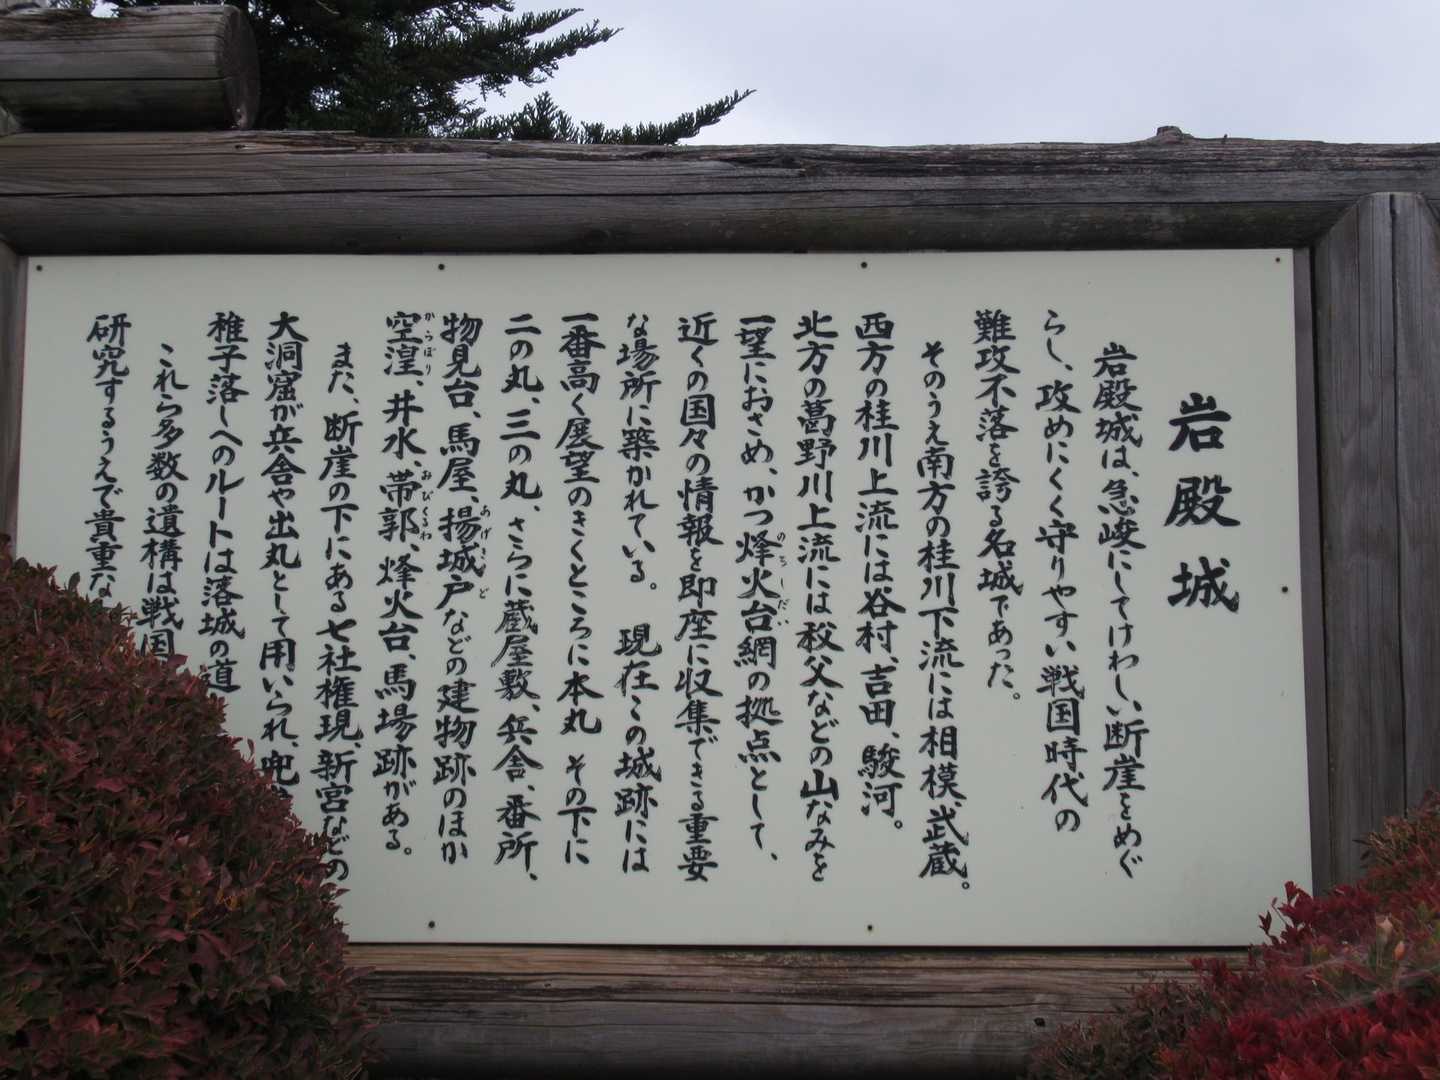 岩殿城
岩殿城は、急峻にしてけわしい断崖をめぐ
らし、攻めにくく守りやすい戦国時代の
難攻不落を誇る名城であった。
そのうえ南方の桂川下流には相模、武蔵。
西方の桂川上流には谷村、吉田、駿河。
北方の葛野川上流には秩父などの山なみを
一望におさめ、かつ烽火台網の拠点として、
のろしだい
近くの国々の情報を即座に収集できる重要
な場所に築かれている。現在この城跡には
一番高く展望のきくところに本丸 その下に
二の丸、三の丸、さらに蔵屋敷、兵舎、番所、
物見台、馬屋、揚城戸などの建物跡のほか
あげきど
空湟、井水、帯郭、烽火台、馬場跡がある。
からぼり
おびくるわ
また、断崖の下にある七社権現、新宮などの
大洞窟が兵舎や出丸として用いられ、兜
稚子落しへのルートは落城の道
これら多数の遺構は戦国
研究するうえで貴重な